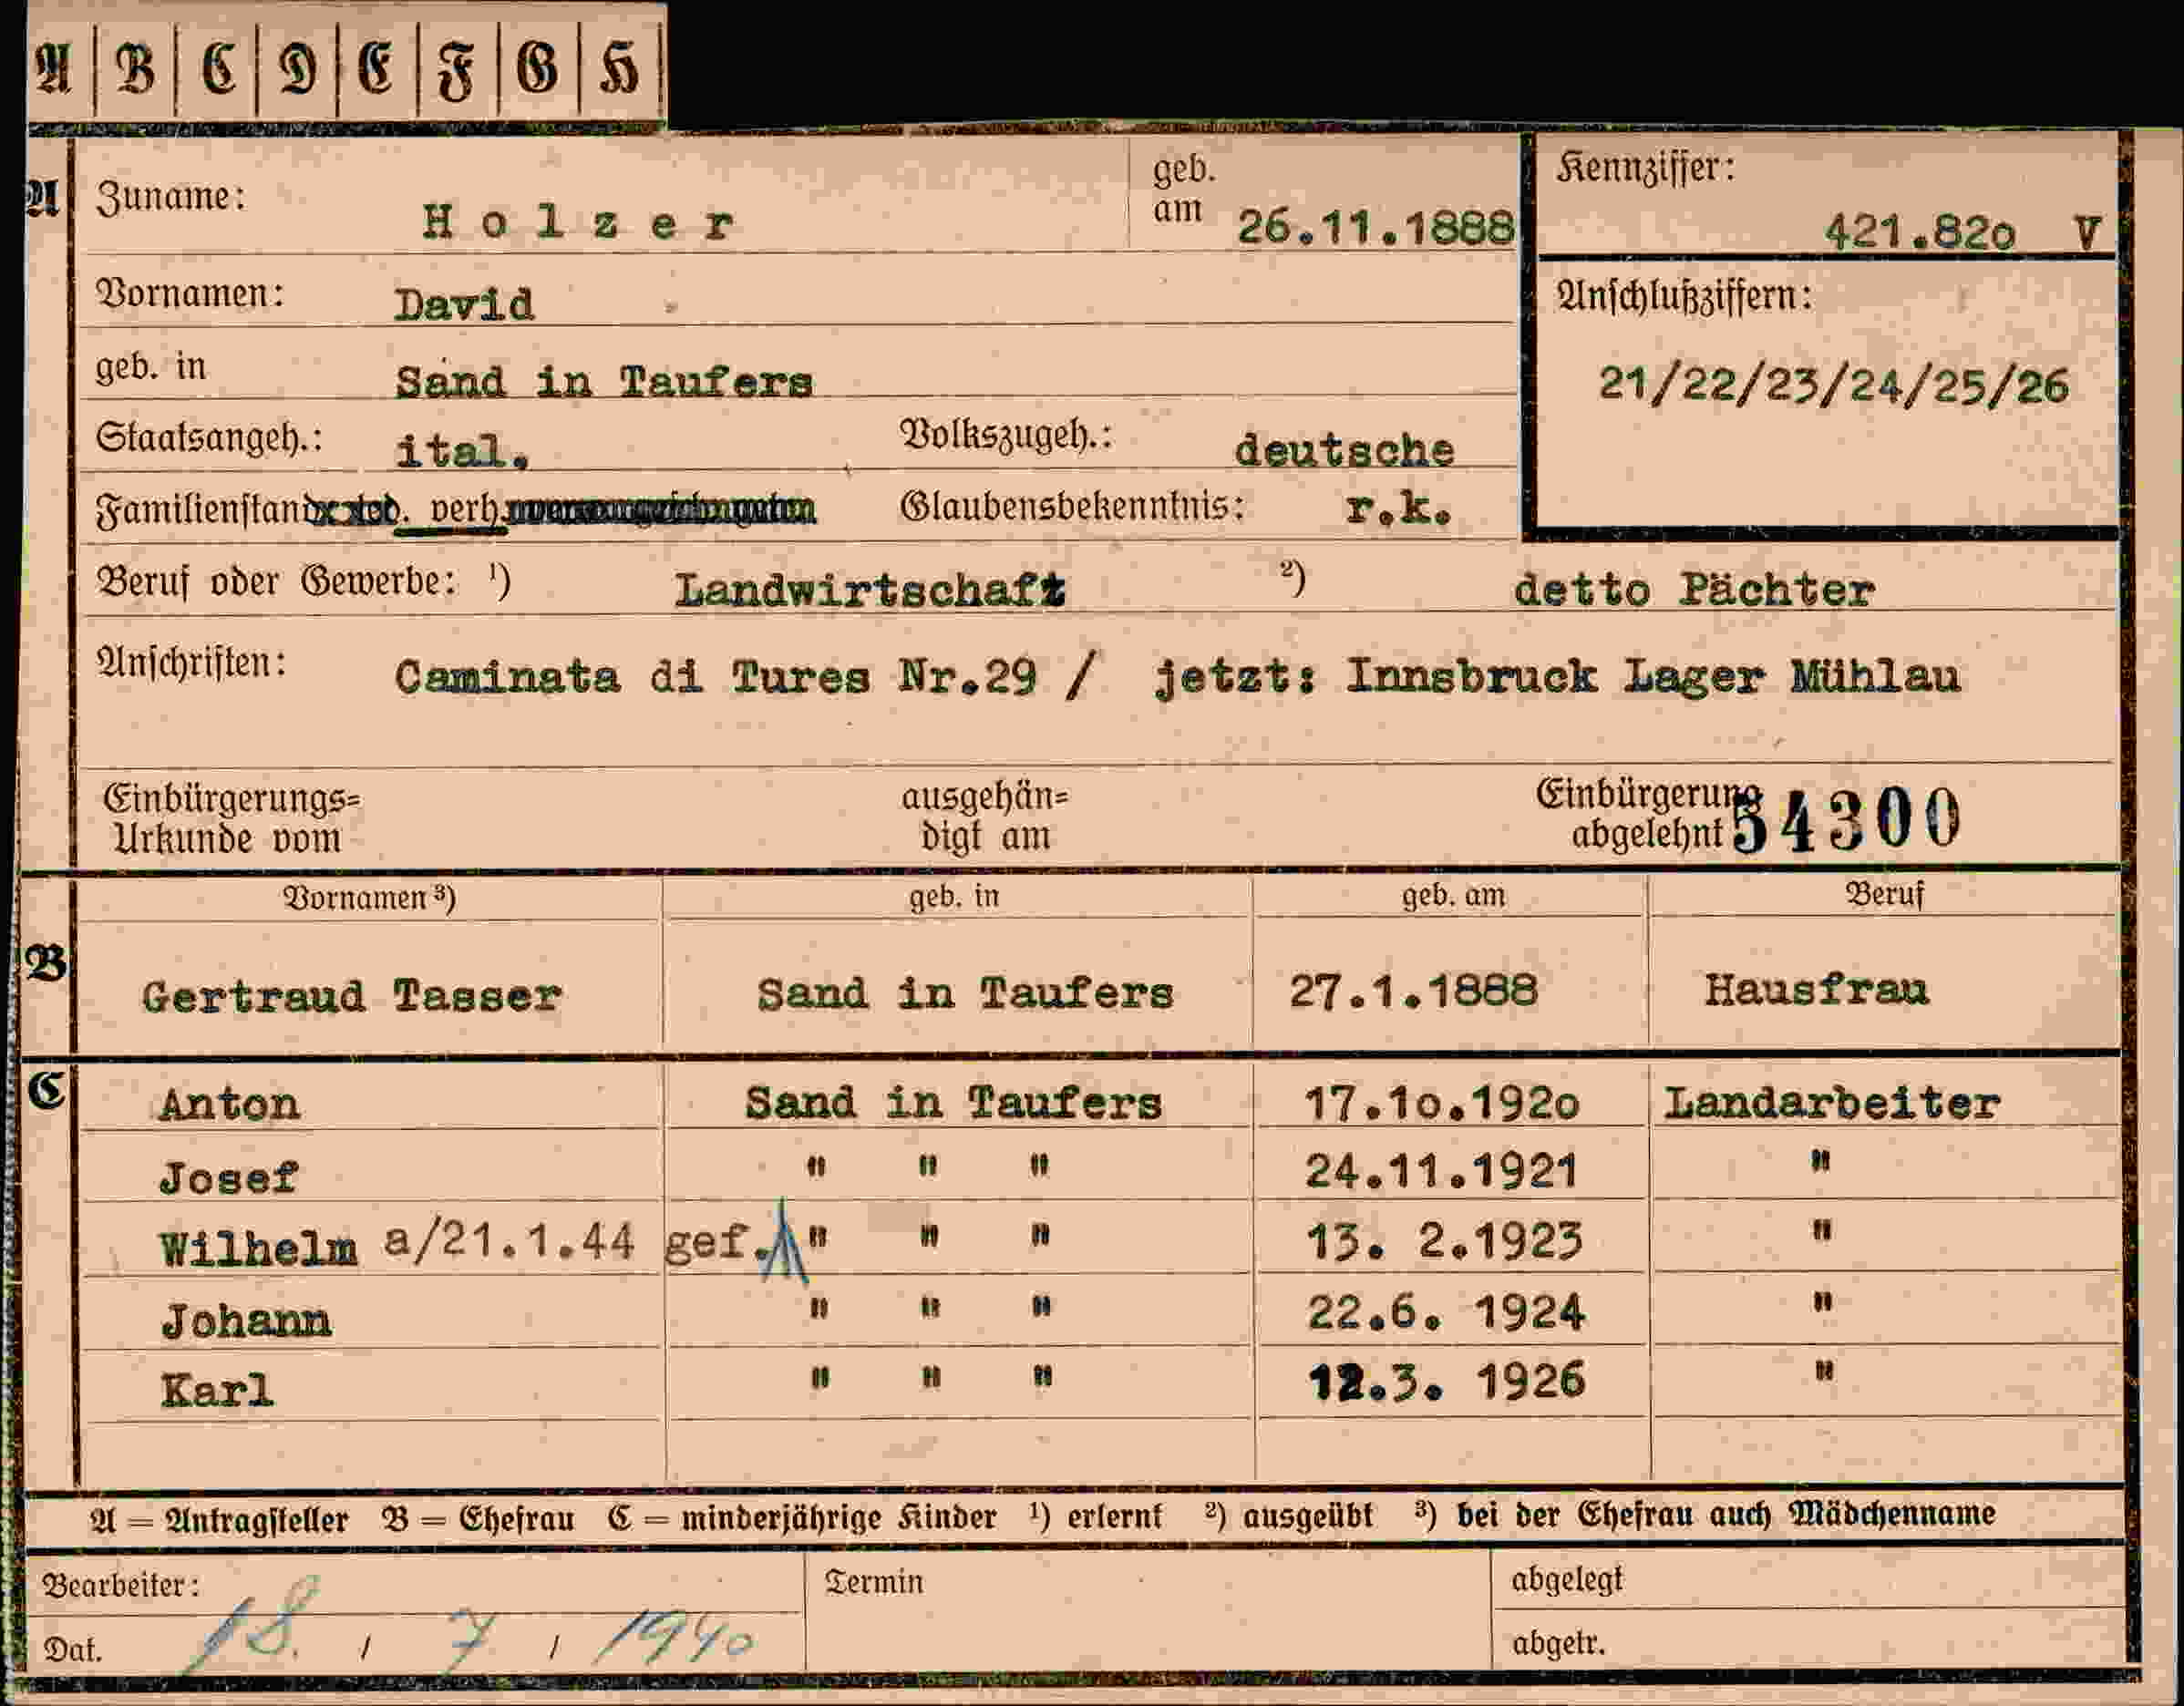 A B C D E F G H
A Zuname: Holzer geb. am 26.11.1888 Kennziffer: 421.82o V
Vornamen: David Anschlußziffern:
geb. in Sand in Taufers 21/22/23/24/25/26
Staatsangeh.: ital. Volkszugeh.: deutsche
Familienstand verh. Glaubensbekenntnis: r.k.
Beruf oder Gewerbe: ¹) Landwirtschaft ²) detto Pächter
Anschriften: Caminata di Tures Nr.29 / jetzt: Innsbruck Lager Mühlau
Einbürgerungs= ausgehän= Einbürgerung
Urkunde vom digt am abgelehnt 54300
Vornamen ³) geb. in geb. am Beruf
B Gertraud Tasser Sand in Taufers 27.1.1888 Hausfrau
C Anton Sand in Taufers 17.1o.192o Landarbeiter
Josef " " " 24.11.1921 "
Wilhelm a/21.1.44 gef. " " " 13. 2.1923 "
Johann " " " 22.6. 1924 "
Karl " " " 12.3. 1926 "
A = Antragsteller B = Ehefrau C = minderjährige Kinder ¹) erlernt ²) ausgeübt ³) bei der Ehefrau auch Mädchenname
Bearbeiter: Termin abgelegt
Dat. 18. / 7 / 1940 abgetr.